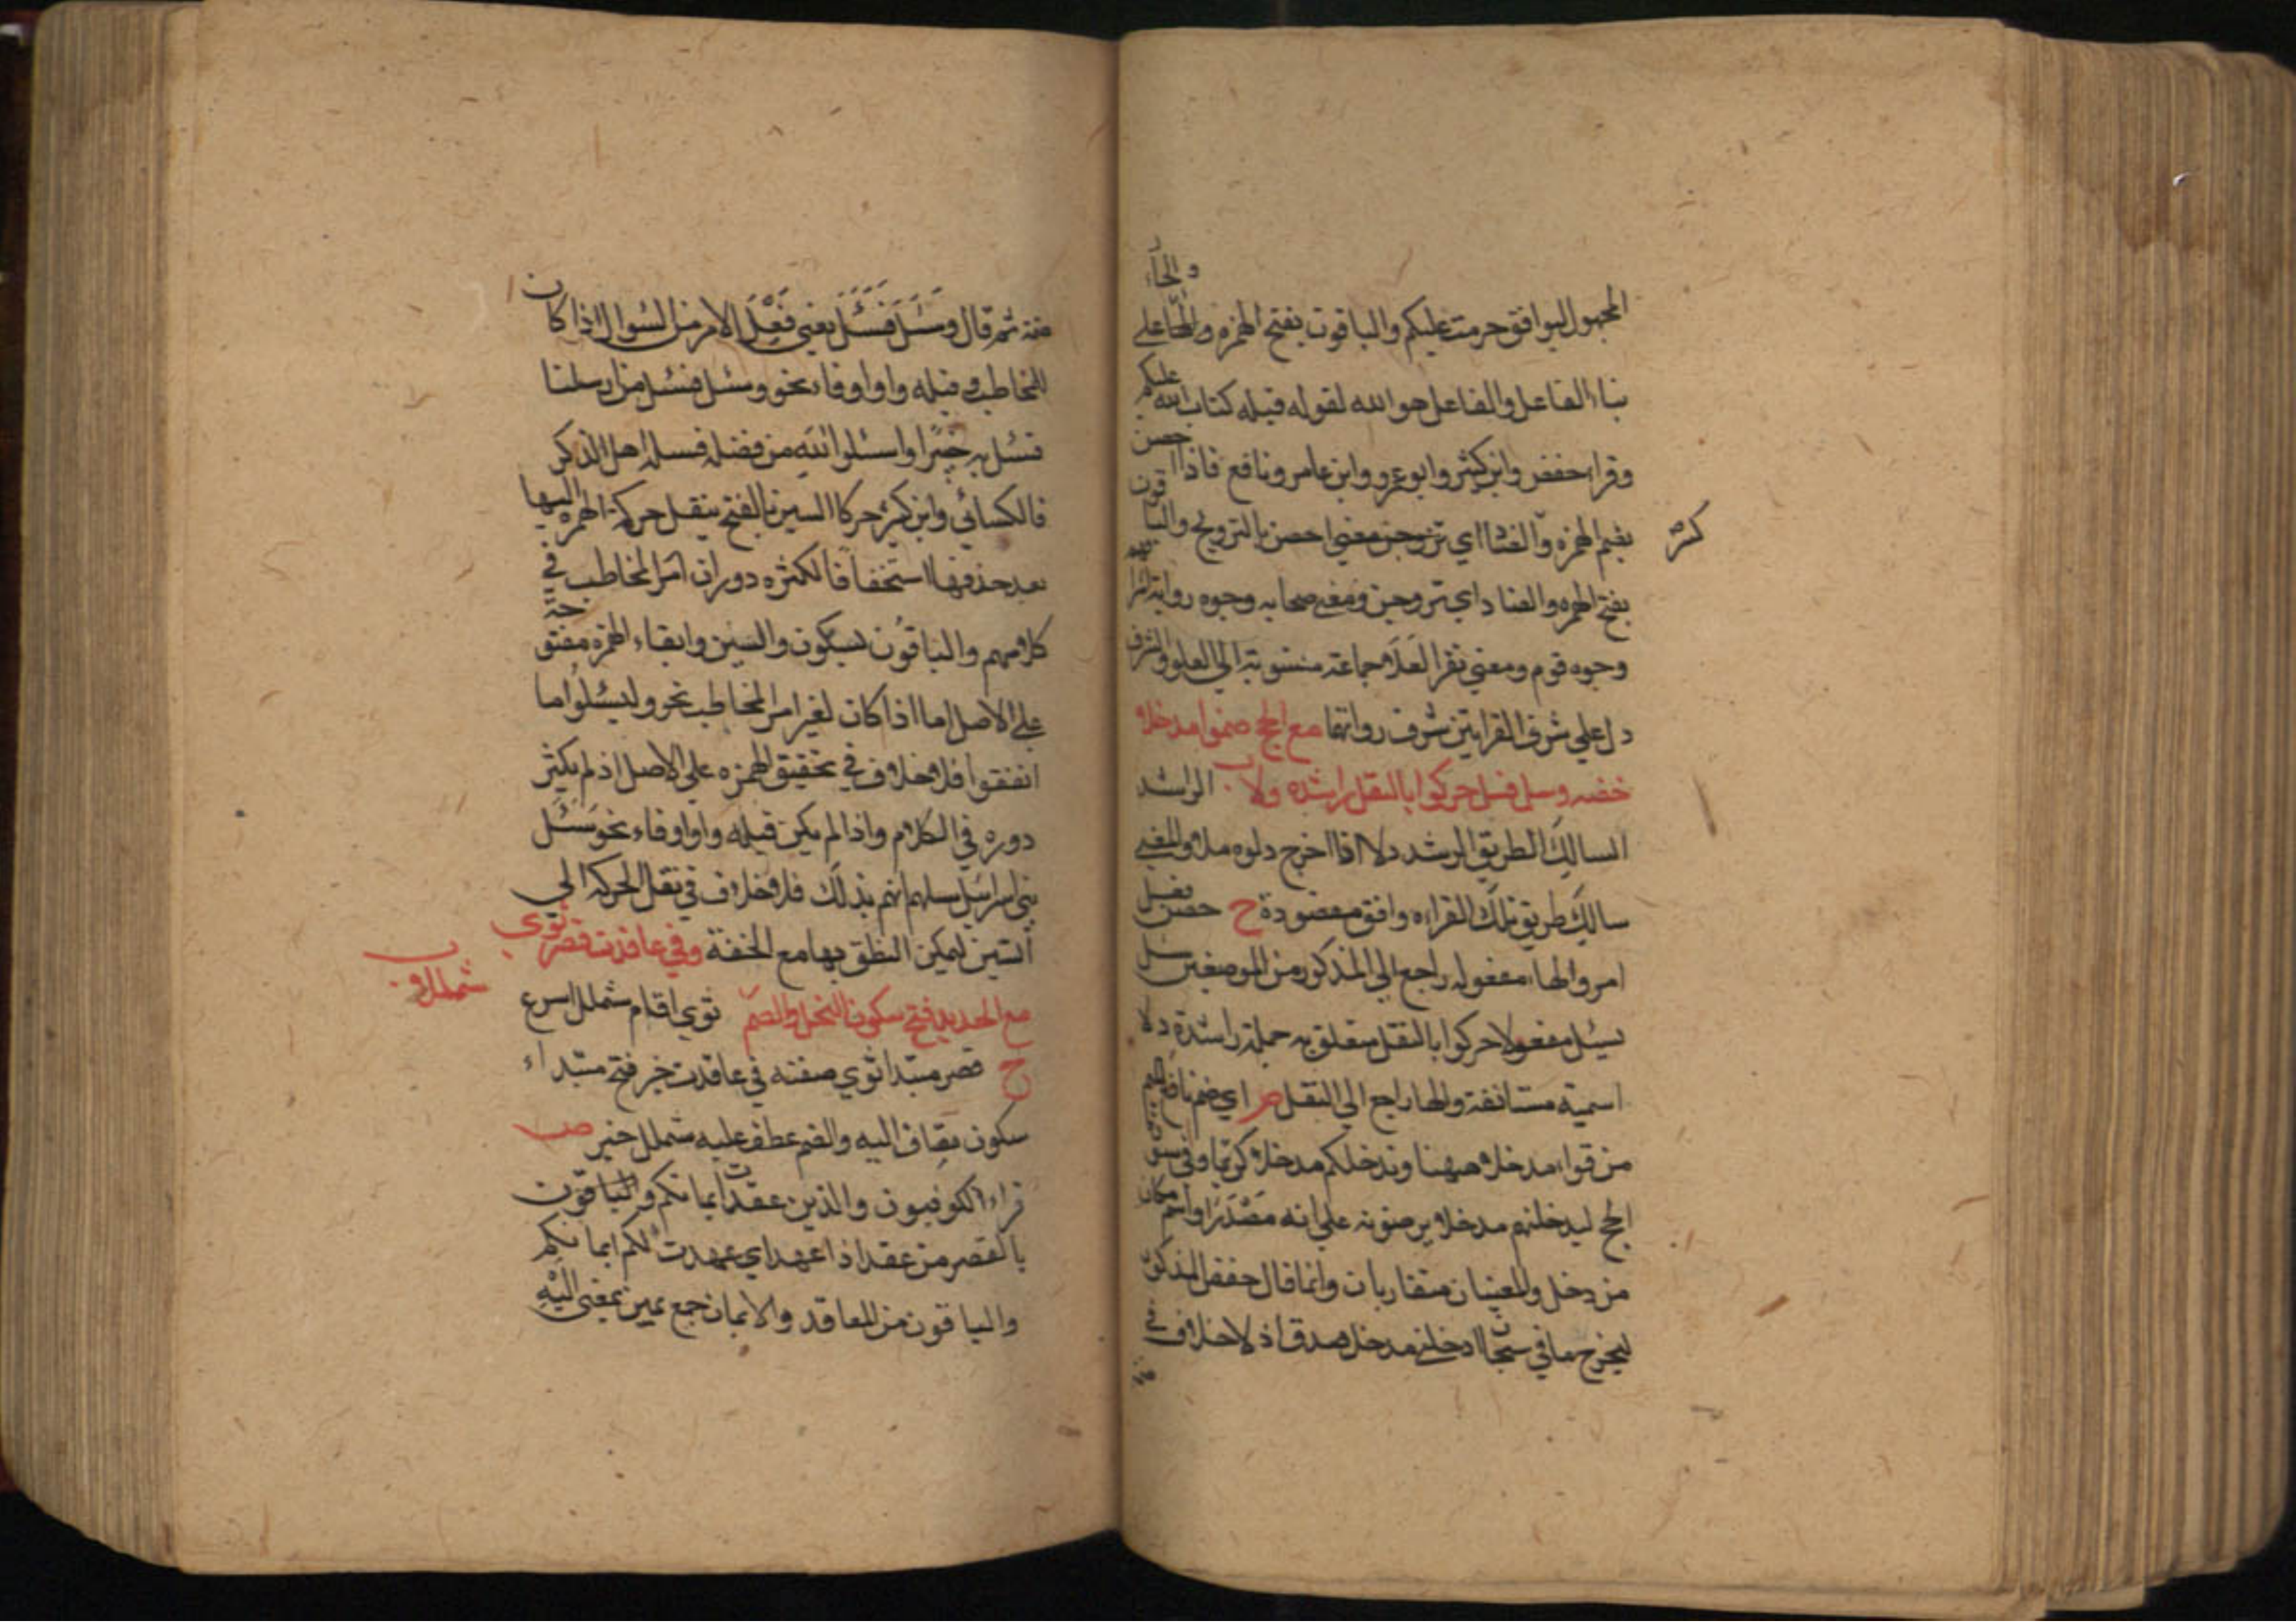 والحاء
المجهول ليوافق حرمت عليكم والباقون بفتح الهمزه والحا على
بناء الفاعل والفاعل هو الله لقوله قبله كتاب الله عليكم
وقراء حفص وابن كثير وابو عمرو وابن عامر ونافع فاذا احصن
بضم الهمزه والصاد اي تزوجن معنى احصن بالتزويج والباقون
كثر
بفتح الهمزه والصاد اي تزوجن ومعنى صحابه وجوه رواية
وجوه قوم ومعنى نفر العلا جماعة منسوبة الى العلو والشرف
دل على شرف القرايتين شرف رواتها مع الحج ضموا مدخلا
خصه وسل فسل حركوا بالنقل راشده ولا الراشد
السالك الطريق الرشد دلا اذا اخرج دلوه ملا والمعنى
سالك طريق تلك القراءه وافق مقصوده ح خصه فعل
امر والها مفعوله راجع الى المذكور من الموضعين سل
سئل مفعولا حركوا بالنقل متعلق به جملة راشده دلا
اسمية مستانفة والها راجع الى النقل ص اي ضم نافع الميم
من قوله مدخلا ههنا وندخلكم مدخلا كريما وفي سورة
الحج ليدخلنهم مدخلا يرضونه على انه مصدرا واسم مكان
من دخل والمعنيان متقاربان وانما قال خصه المذكور
ليخرج ما في سبحان ادخلني مدخل صدق اذ لا خلاف في
ضمة ثم قال وسل فسل يعني فعل الامر من السوال اذا كان
للمخاطب وقبله واو او فاء نحو وسئل فسئل من ارسلنا
فسئل به خبيرا واسئلوا الله من فضله فسلوا اهل الذكر
فالكسائي وابن كثير حركا السين بالفتح بنقل حركة الهمزه اليها
بعد حذفها استخفافا لكثره دوران امر المخاطب في
كلامهم والباقون بسكون والسين وابقاء الهمزه مفتوحة
على الاصل اما اذا كان لغير امر المخاطب نحو وليسئلوا ما
انفقوا فلا خلاف في تحقيق الهمزه على الاصل اذ لم يكثر
دوره في الكلام واذا لم يكن قبله واو او فاء نحو سئل
بني اسرائيل سلهم ايهم بذلك فلا خلاف في نقل الحركه الى
السين ليمكن النطق بها مع الخفة وفي عاقدت قصر ثوى
مع الحديد فتح سكون البخل والضم شمللا و ثوى اقام شملل اسرع
ح قصر مبتدا ثوى صفته في عاقدت خبر فتح مبتداء
سكون يضاف اليه والضم عطف عليه شملل خبر ص
قراء الكوفيون والذين عقدت ايمانكم والباقون
بالقصر من عقد اذا عهد اي عهدت لكم ايمانكم
والباقون من المعاقد والايمان جمع يمين بمعنى اليه